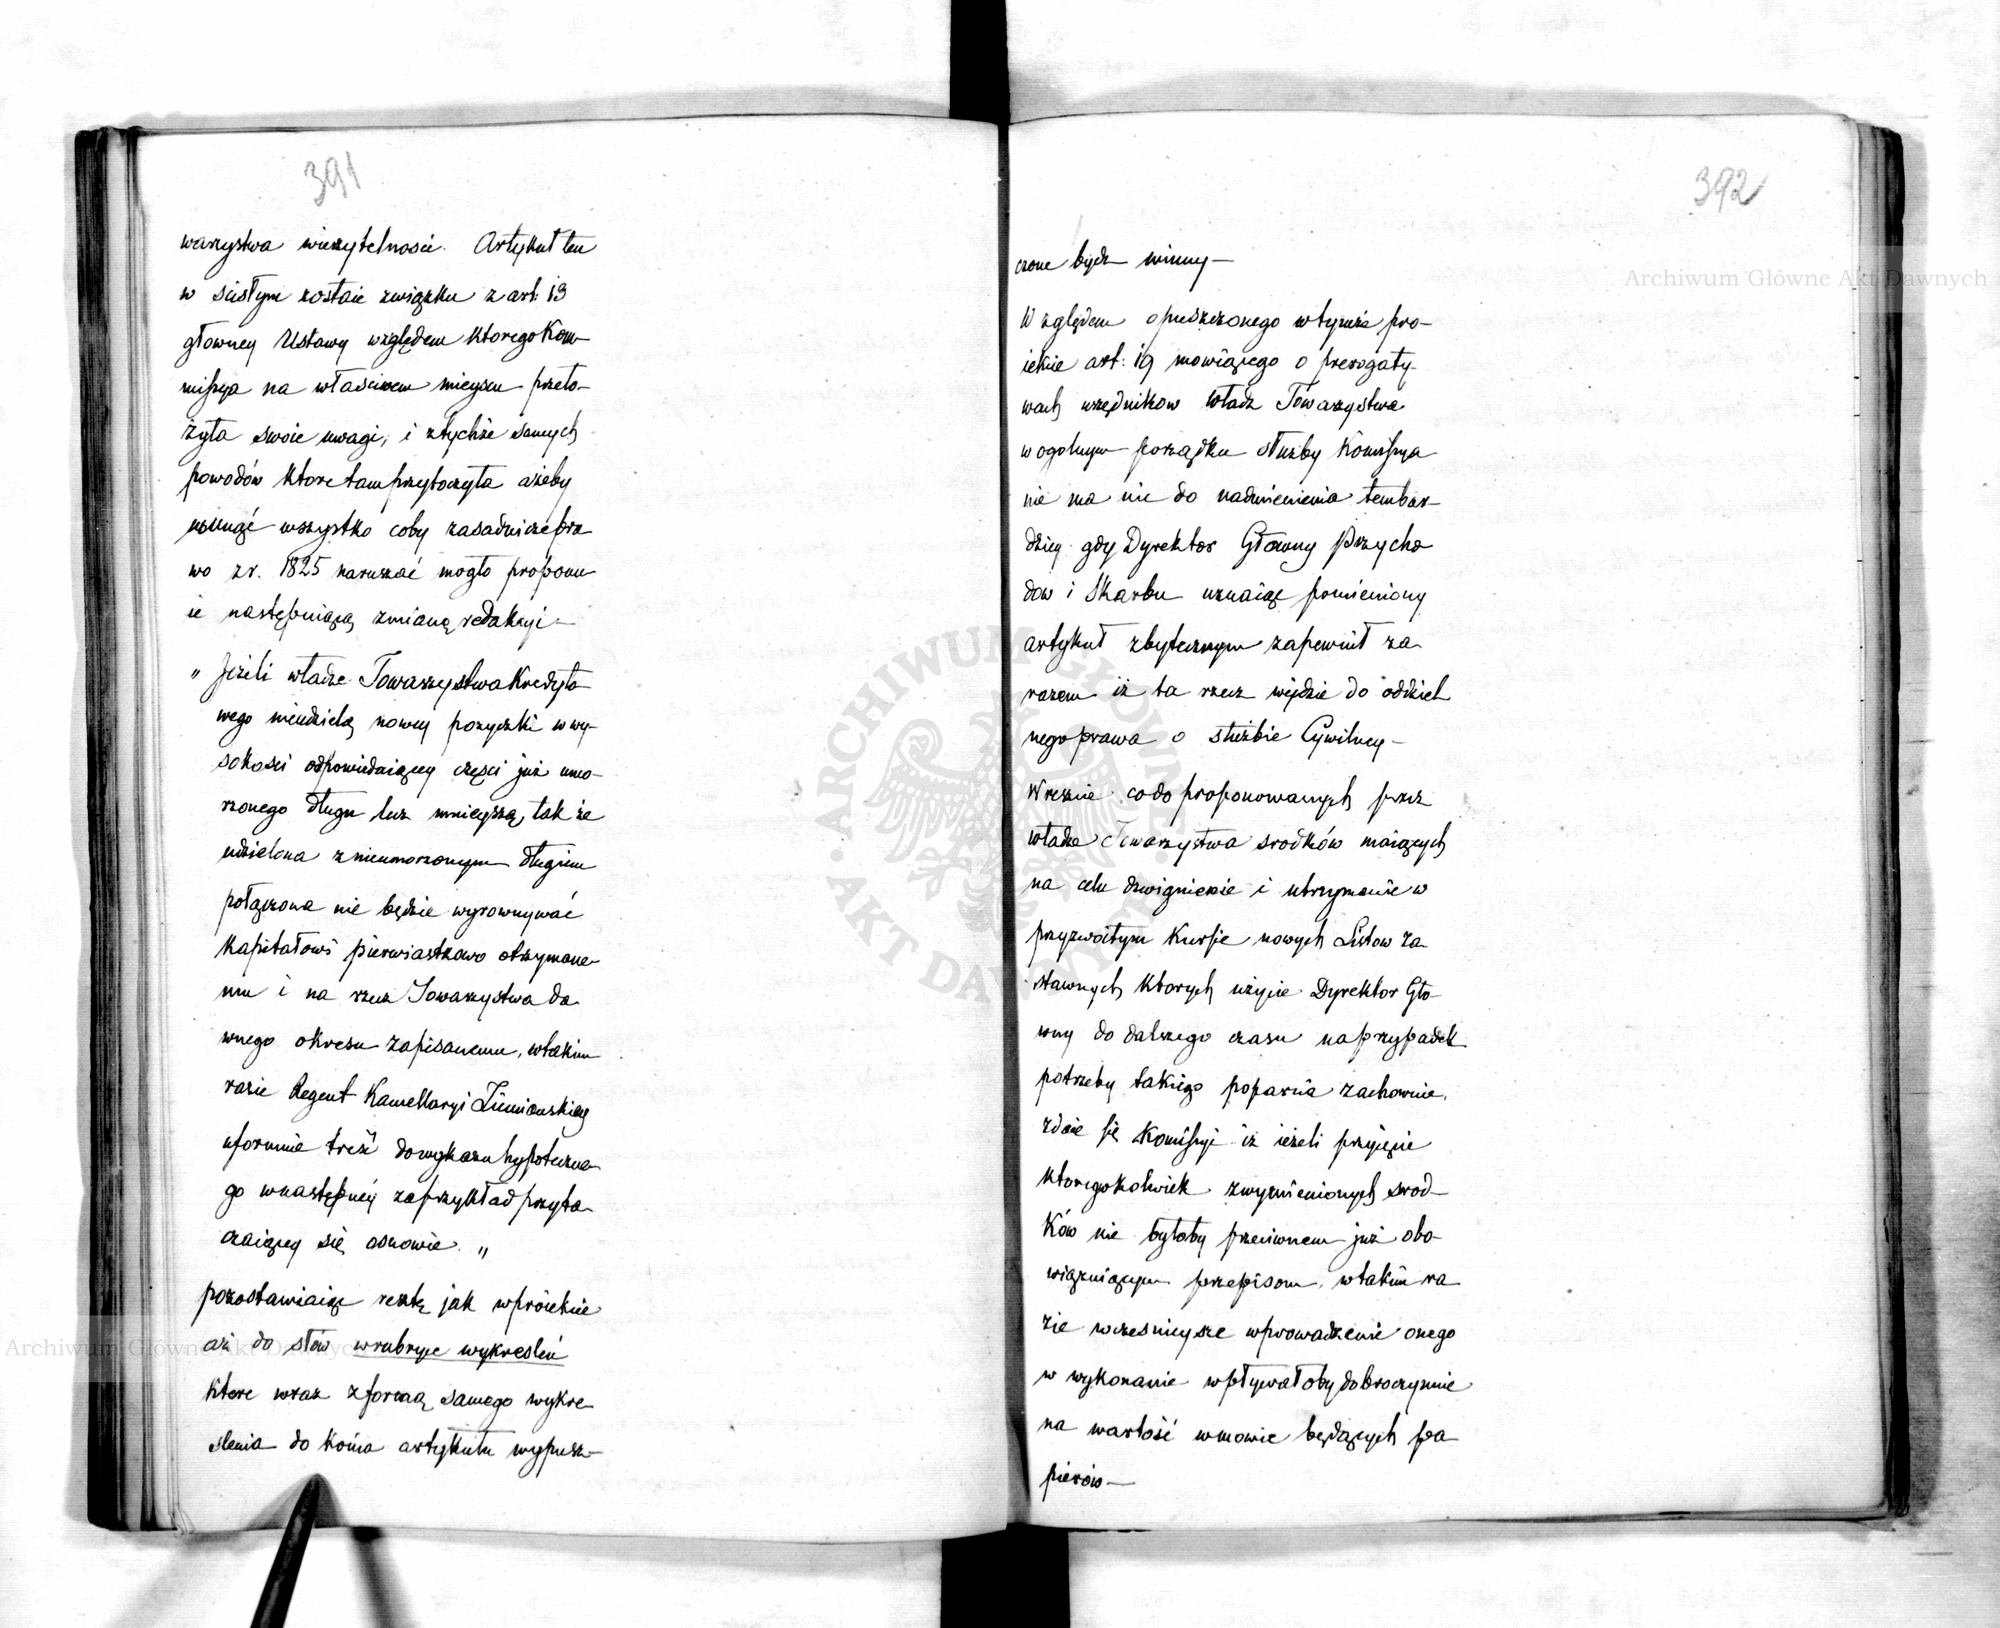 391
warzystwa wierzytelnosci. Artykuł ten
w scisłym zostaie związku z art: 13
głowney Ustawy względem ktorego Kom-
missya na właściwem mieyscu przeło-
żyła swoie uwagi, i ztychże samych
powodów ktore tam przytoczyła ażeby
usunąć wszystko coby zasadnicze pra-
wo z r. 1825 naruszać mogło proponu
ie następuiącą zmianę redakcyi—
„ Jeżeli władze Towarzystwa Kredyto
wego nieudzielą nowey pożyczki w wy-
sokości odpowiedaiącey częsci już umo-
rzonego długu lecz mnieyszą, tak że
udzielona z nieumorzonym długiem
połączona nie będzie wyrownywać
Kapitałowi pierwiastkowo otrzymane-
mu i na rzecz Towarzystwa da-
wnego okresu zapisanemu, wtakim
razie Regent Kancellaryi Ziemianskiey
uformuie treść do wykazu hypoteczne-
go wnastępney zaprzykład przyta-
czaiącey się osnowie. „
pozostawiaiąc resztę jak wproiekcie
aż do słów wrubryce wykresleń
ktore wraz z formą samego wykre-
slenia do końca artykułu wypusz-
392
czone bydz winny—
Względem opuszczonego wtymże pro-
iekcie art: 19 mowiącego o prerogaty-
wach urzędnikow Władz Towarzystwa
w ogolnym porządku służby Kommissya
nie ma nic do nadmienienia tembar-
dziey gdy Dyrektor Główny Przycho
dow i Skarbu uznaiąc pomieniony
artykuł zbytecznym zapewnił za-
razem iż ta rzecz wejdzie do oddziel
nego prawa o służbie Cywilney—
Wreszcie co do proponowanych przez
władze Towarzystwa srodków maiących
na celu dzwignienie i utrzymanie w
przyzwoitym Kursie nowych Listow Za-
stawnych ktorych użycie Dyrektor Gło-
wny do dalszego czasu na przypadek
potrzeby takiego poparcia zachowuie,
zdaie się Kommissyi iż ieżeli przyjęcie
ktoregokolwiek zwymienionych srod-
Ków nie byłoby przeciwnem już obo-
wiązuiącym przepisom, wtakim ra-
zie wczesnieysze wprowadzenie onego
w wykonanie wpływałoby dobroczynnie
na wartość wmowie będących pa-
pierów—
Archiwum Główne Akt Dawnych
Archiwum Główne Akt Dawnych
ARCHIWUM GŁÓWNE
AKT DAWNYCH